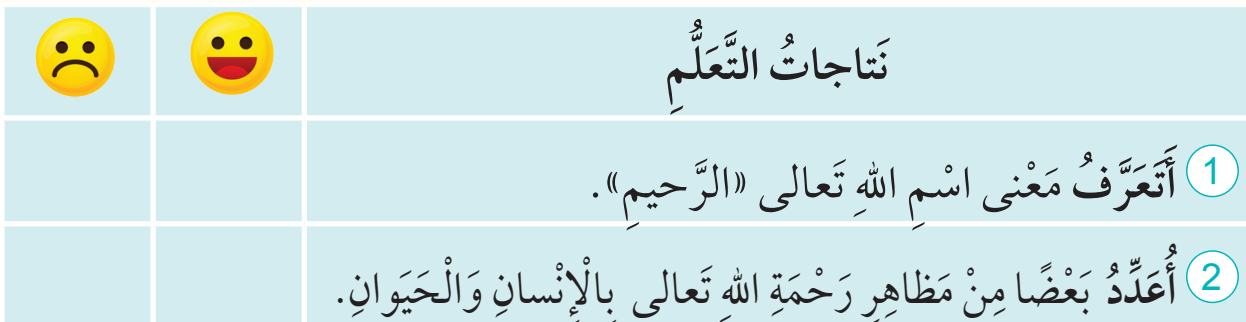 نَتاجاتُ التَّعَلُّمِ
1 أَتَعَرَّفُ مَعْنى اسْمِ اللهِ تَعالى «الرَّحيمِ».
2 أُعَدِّدُ بَعْضًا مِنْ مَظاهِرِ رَحْمَةِ اللهِ تَعالى بِالْإِنْسانِ وَالْحَيَوانِ.